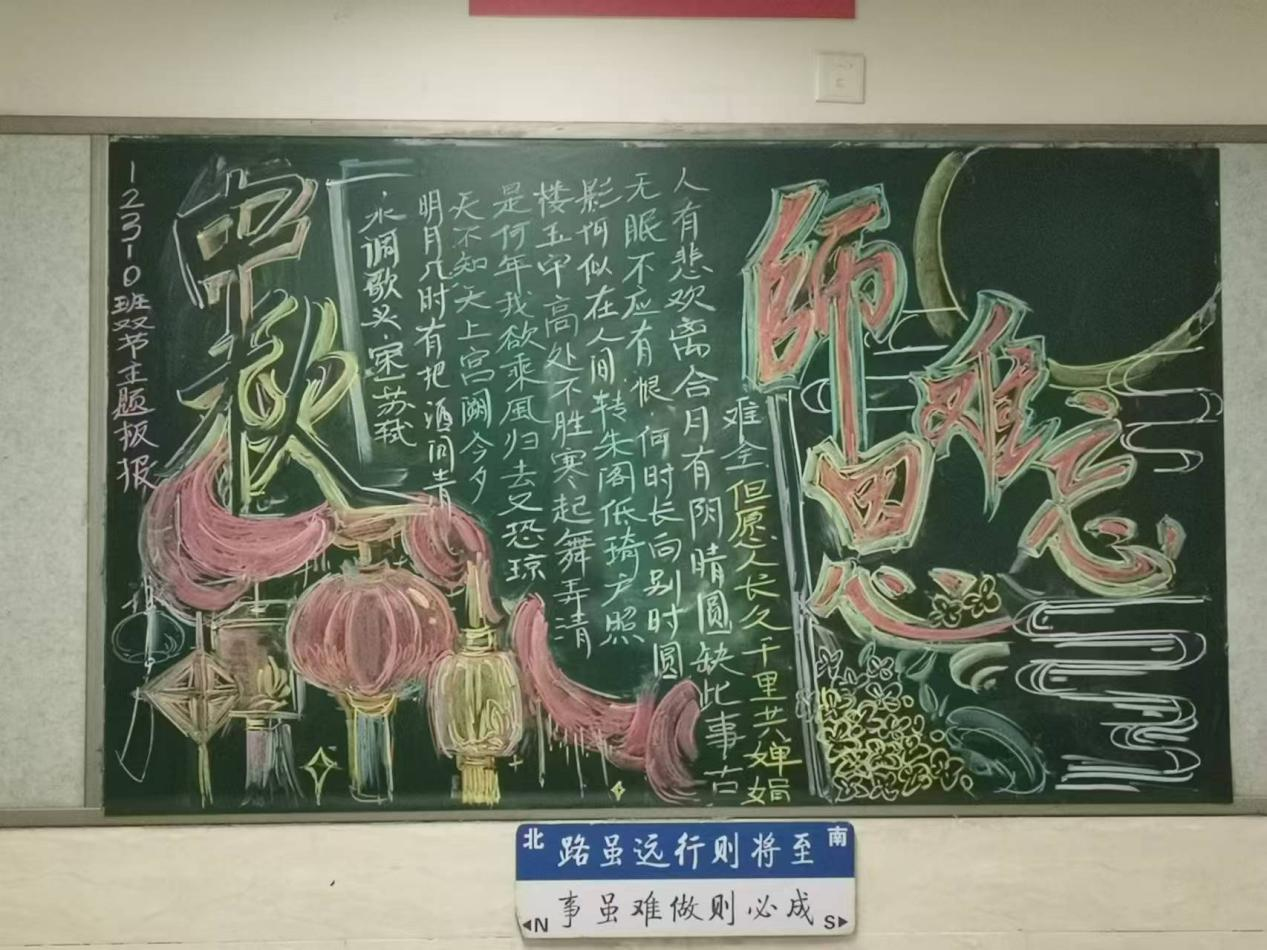 12310班双节主题板报
中秋
水调歌头宋苏轼
明月几时有把酒问青
天不知天上宫阙今夕
是何年我欲乘風归去又恐琼
楼玉宇高处不胜寒起舞弄清
影何似在人间转朱阁低琦户照
无眠不应有恨何时长向别时圆
人有悲欢离合月有阴晴圆缺此事古
难全但愿人长久千里共婵娟
師恩难忘
北 路虽远行则将至 南
N 事虽难做则必成 S